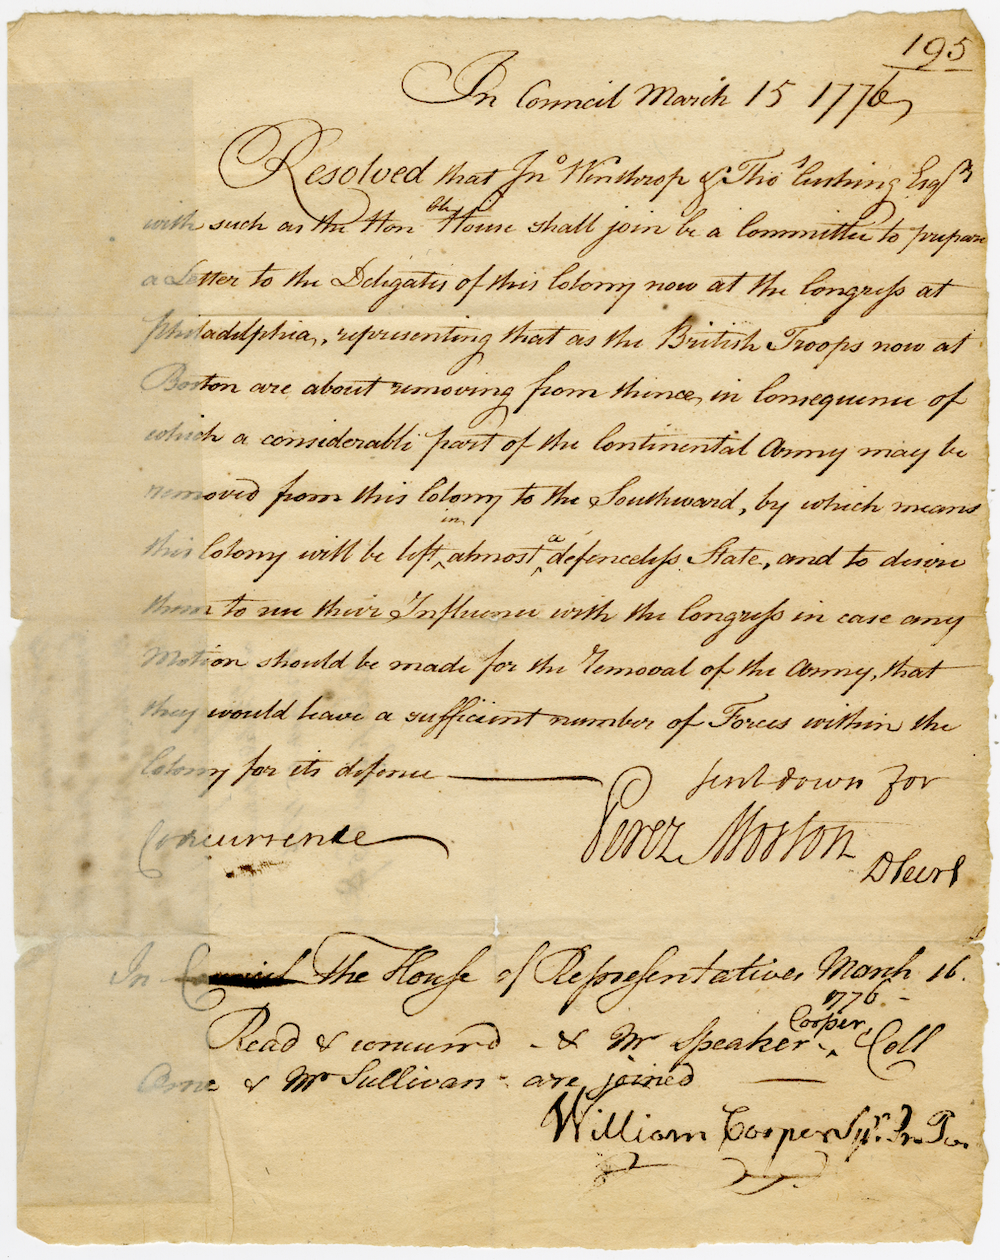 195
In Council March 15 1776,
Resolved that Jnº Winthrop & Thoˢ Cushing Esqʳˢ
with such as the Honᵇˡᵉ House shall join be a Committee to prepare
a Letter to the Delegates of this Colony now at the Congress at
Philadelphia, representing that as the British Troops now at
Boston are about removing from thence, in Consequence of
which a considerable part of the Continental Army may be
removed from this Colony to the Southward, by which means
this Colony will be left ‸in almost ‸a defenceless State, and to desire
them to use their Influence with the Congress in case any
Motion should be made for the removal of the Army, that
they would leave a sufficient number of Forces within the
Colony for its defence — sent down for
Concurrence
Perez Morton
D Secry
In Council The House of Representatives March 16.
1776 -
Read & concurred - & Mr Speaker ‸Cooper, Coll
Orne & Mr Sullivan - are joined —
William Cooper Spr. Pro. Tem.